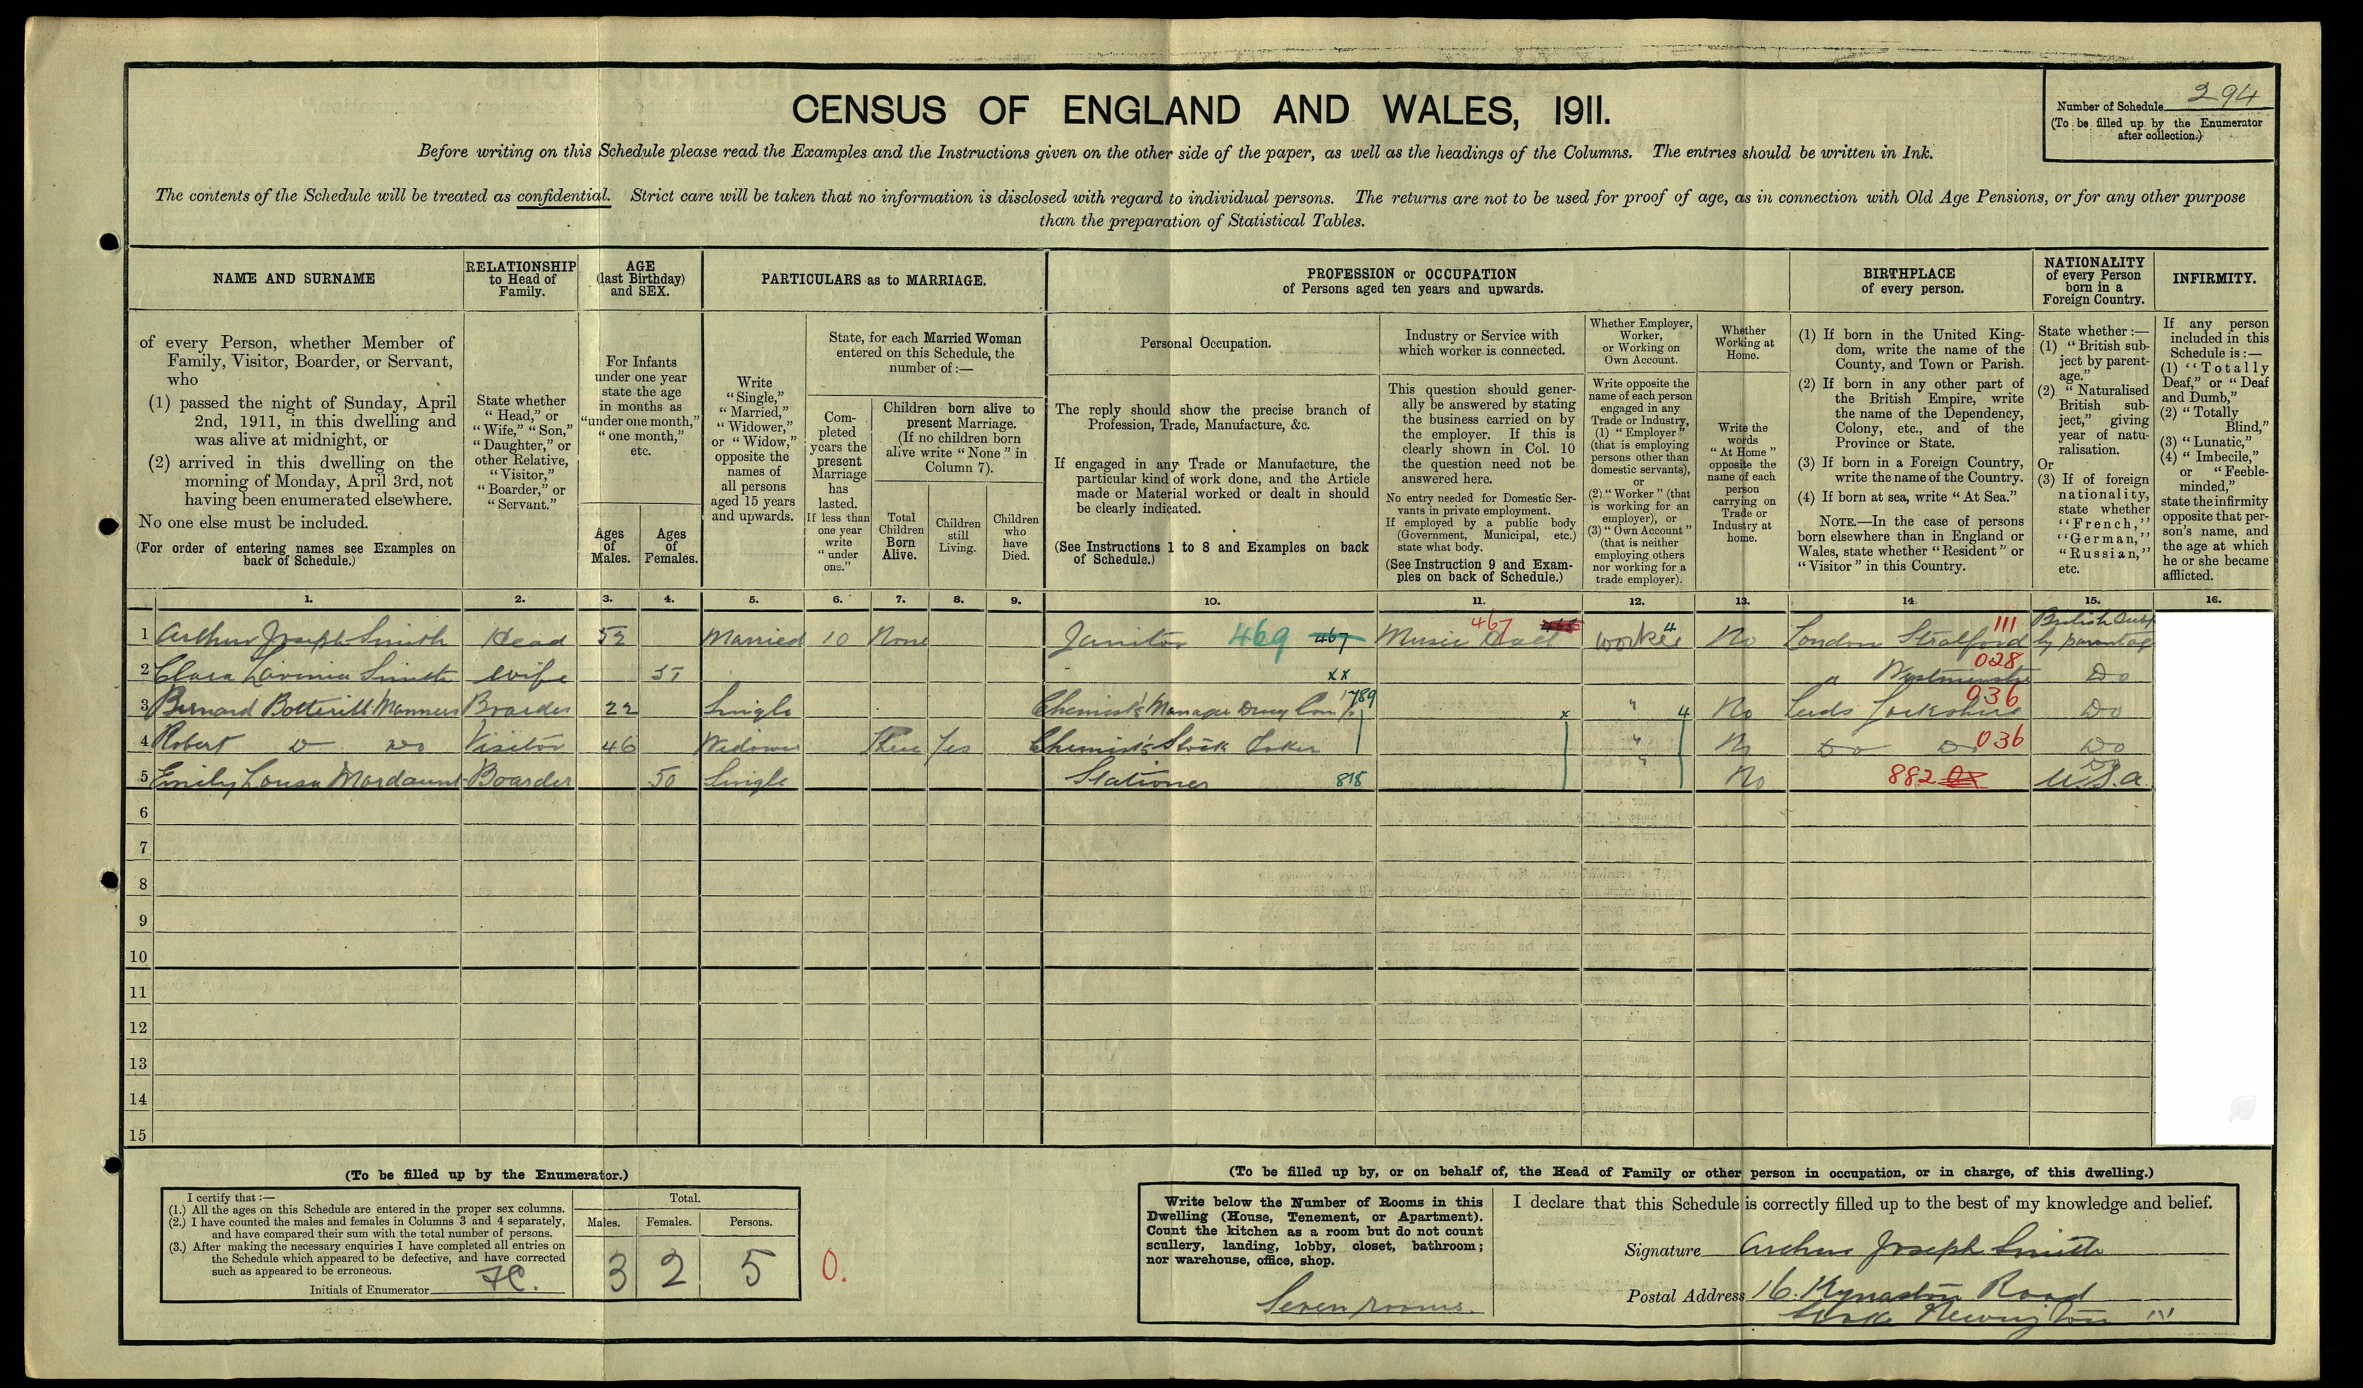 CENSUS OF ENGLAND AND WALES, 1911.
Number of Schedule 294
(To be filled up by the Enumerator
after collection.)
Before writing on this Schedule please read the Examples and the Instructions given on the other side of the paper, as well as the headings of the Columns. The entries should be written in Ink.
The contents of the Schedule will be treated as confidential. Strict care will be taken that no information is disclosed with regard to individual persons. The returns are not to be used for proof of age, as in connection with Old Age Pensions, or for any other purpose
than the preparation of Statistical Tables.
NAME AND SURNAME
of every Person, whether Member of
Family, Visitor, Boarder, or Servant,
who
(1) passed the night of Sunday, April
2nd, 1911, in this dwelling and
was alive at midnight, or
(2) arrived in this dwelling on the
morning of Monday, April 3rd, not
having been enumerated elsewhere.
No one else must be included.
(For order of entering names see Examples on
back of Schedule.)
RELATIONSHIP
to Head of
Family.
State whether
"Head," or
"Wife," "Son,"
"Daughter," or
other Relative,
"Visitor,"
"Boarder," or
"Servant."
AGE
(last Birthday)
and SEX.
For Infants
under one year
state the age
in months as
"under one month,"
"one month,"
etc.
Ages
of
Males.
Ages
of
Females.
PARTICULARS as to MARRIAGE.
Write
"Single,"
"Married,"
"Widower,"
or "Widow,"
opposite the
names of
all persons
aged 15 years
and upwards.
State, for each Married Woman
entered on this Schedule, the
number of :—
Com-
pleted
years the
present
Marriage
has
lasted.
If less than
one year
write
"under
one."
Children born alive to
present Marriage.
(If no children born
alive write "None" in
Column 7).
Total
Children
Born
Alive.
Children
still
Living.
Children
who
have
Died.
PROFESSION or OCCUPATION
of Persons aged ten years and upwards.
Personal Occupation.
The reply should show the precise branch of
Profession, Trade, Manufacture, &c.
If engaged in any Trade or Manufacture, the
particular kind of work done, and the Article
made or Material worked or dealt in should
be clearly indicated.
(See Instructions 1 to 8 and Examples on back
of Schedule.)
Industry or Service with
which worker is connected.
This question should gener-
ally be answered by stating
the business carried on by
the employer. If this is
clearly shown in Col. 10
the question need not be
answered here.
No entry needed for Domestic Ser-
vants in private employment.
If employed by a public body
(Government, Municipal, etc.)
state what body.
(See Instruction 9 and Exam-
ples on back of Schedule.)
Whether Employer,
Worker,
or Working on
Own Account.
Write opposite the
name of each person
engaged in any
Trade or Industry,
(1) "Employer"
(that is employing
persons other than
domestic servants),
or
(2) "Worker" (that
is working for an
employer), or
(3) "Own Account"
(that is neither
employing others
nor working for a
trade employer).
Whether
Working at
Home.
Write the
words
"At Home"
opposite the
name of each
person
carrying on
Trade or
Industry at
home.
BIRTHPLACE
of every person.
(1) If born in the United King-
dom, write the name of the
County, and Town or Parish.
(2) If born in any other part of
the British Empire, write
the name of the Dependency,
Colony, etc., and of the
Province or State.
(3) If born in a Foreign Country,
write the name of the Country.
(4) If born at sea, write "At Sea."
NOTE.—In the case of persons
born elsewhere than in England or
Wales, state whether "Resident" or
"Visitor" in this Country.
NATIONALITY
of every Person
born in a
Foreign Country.
State whether :—
(1) "British sub-
ject by parent-
age."
(2) "Naturalised
British sub-
ject," giving
year of natu-
ralisation.
Or
(3) If of foreign
nationality,
state whether
"French,"
"German,"
"Russian,"
etc.
INFIRMITY.
If any person
included in this
Schedule is :—
(1) "Totally
Deaf," or "Deaf
and Dumb,"
(2) "Totally
Blind,"
(3) "Lunatic,"
(4) "Imbecile,"
or "Feeble-
minded,"
state the infirmity
opposite that per-
son's name, and
the age at which
he or she became
afflicted.
1. 2. 3. 4. 5. 6. 7. 8. 9. 10. 11. 12. 13. 14 15. 16.
1 Arthur Joseph Smith Head 52 Married 10 None Janitor 469 467 Music Hall 467 Worker 4 No London Stratford 111 British Subj by parentage
2 Clara Lavinia Smith Wife xx " Westminster 028 Do
3 Bernard Botterill Manners Boarder 22 Single Chemist's Manager Drug Com 789 x " 4 No Leeds Yorkshire 036 Do
4 Robert Do Do Visitor 46 Widower Three Yes Chemist's Stock Taker " No Do Do 036 Do
5 Emily Louisa Mordaunt Boarder 50 Single Stationer 815 " No 882 U.S.A.
6
7
8
9
10
11
12
13
14
15
(To be filled up by the Enumerator.)
I certify that :—
(1.) All the ages on this Schedule are entered in the proper sex columns.
(2.) I have counted the males and females in Columns 3 and 4 separately,
and have compared their sum with the total number of persons.
(3.) After making the necessary enquiries I have completed all entries on
the Schedule which appeared to be defective, and have corrected
such as appeared to be erroneous.
Initials of Enumerator
Total.
Males. Females. Persons.
3 2 5 0.
(To be filled up by, or on behalf of, the Head of Family or other person in occupation, or in charge, of this dwelling.)
Write below the Number of Rooms in this
Dwelling (House, Tenement, or Apartment).
Count the kitchen as a room but do not count
scullery, landing, lobby, closet, bathroom;
nor warehouse, office, shop.
Seven rooms.
I declare that this Schedule is correctly filled up to the best of my knowledge and belief.
Signature Arthur Joseph Smith
Postal Address 16. Kynaston Road
Stoke Newington N